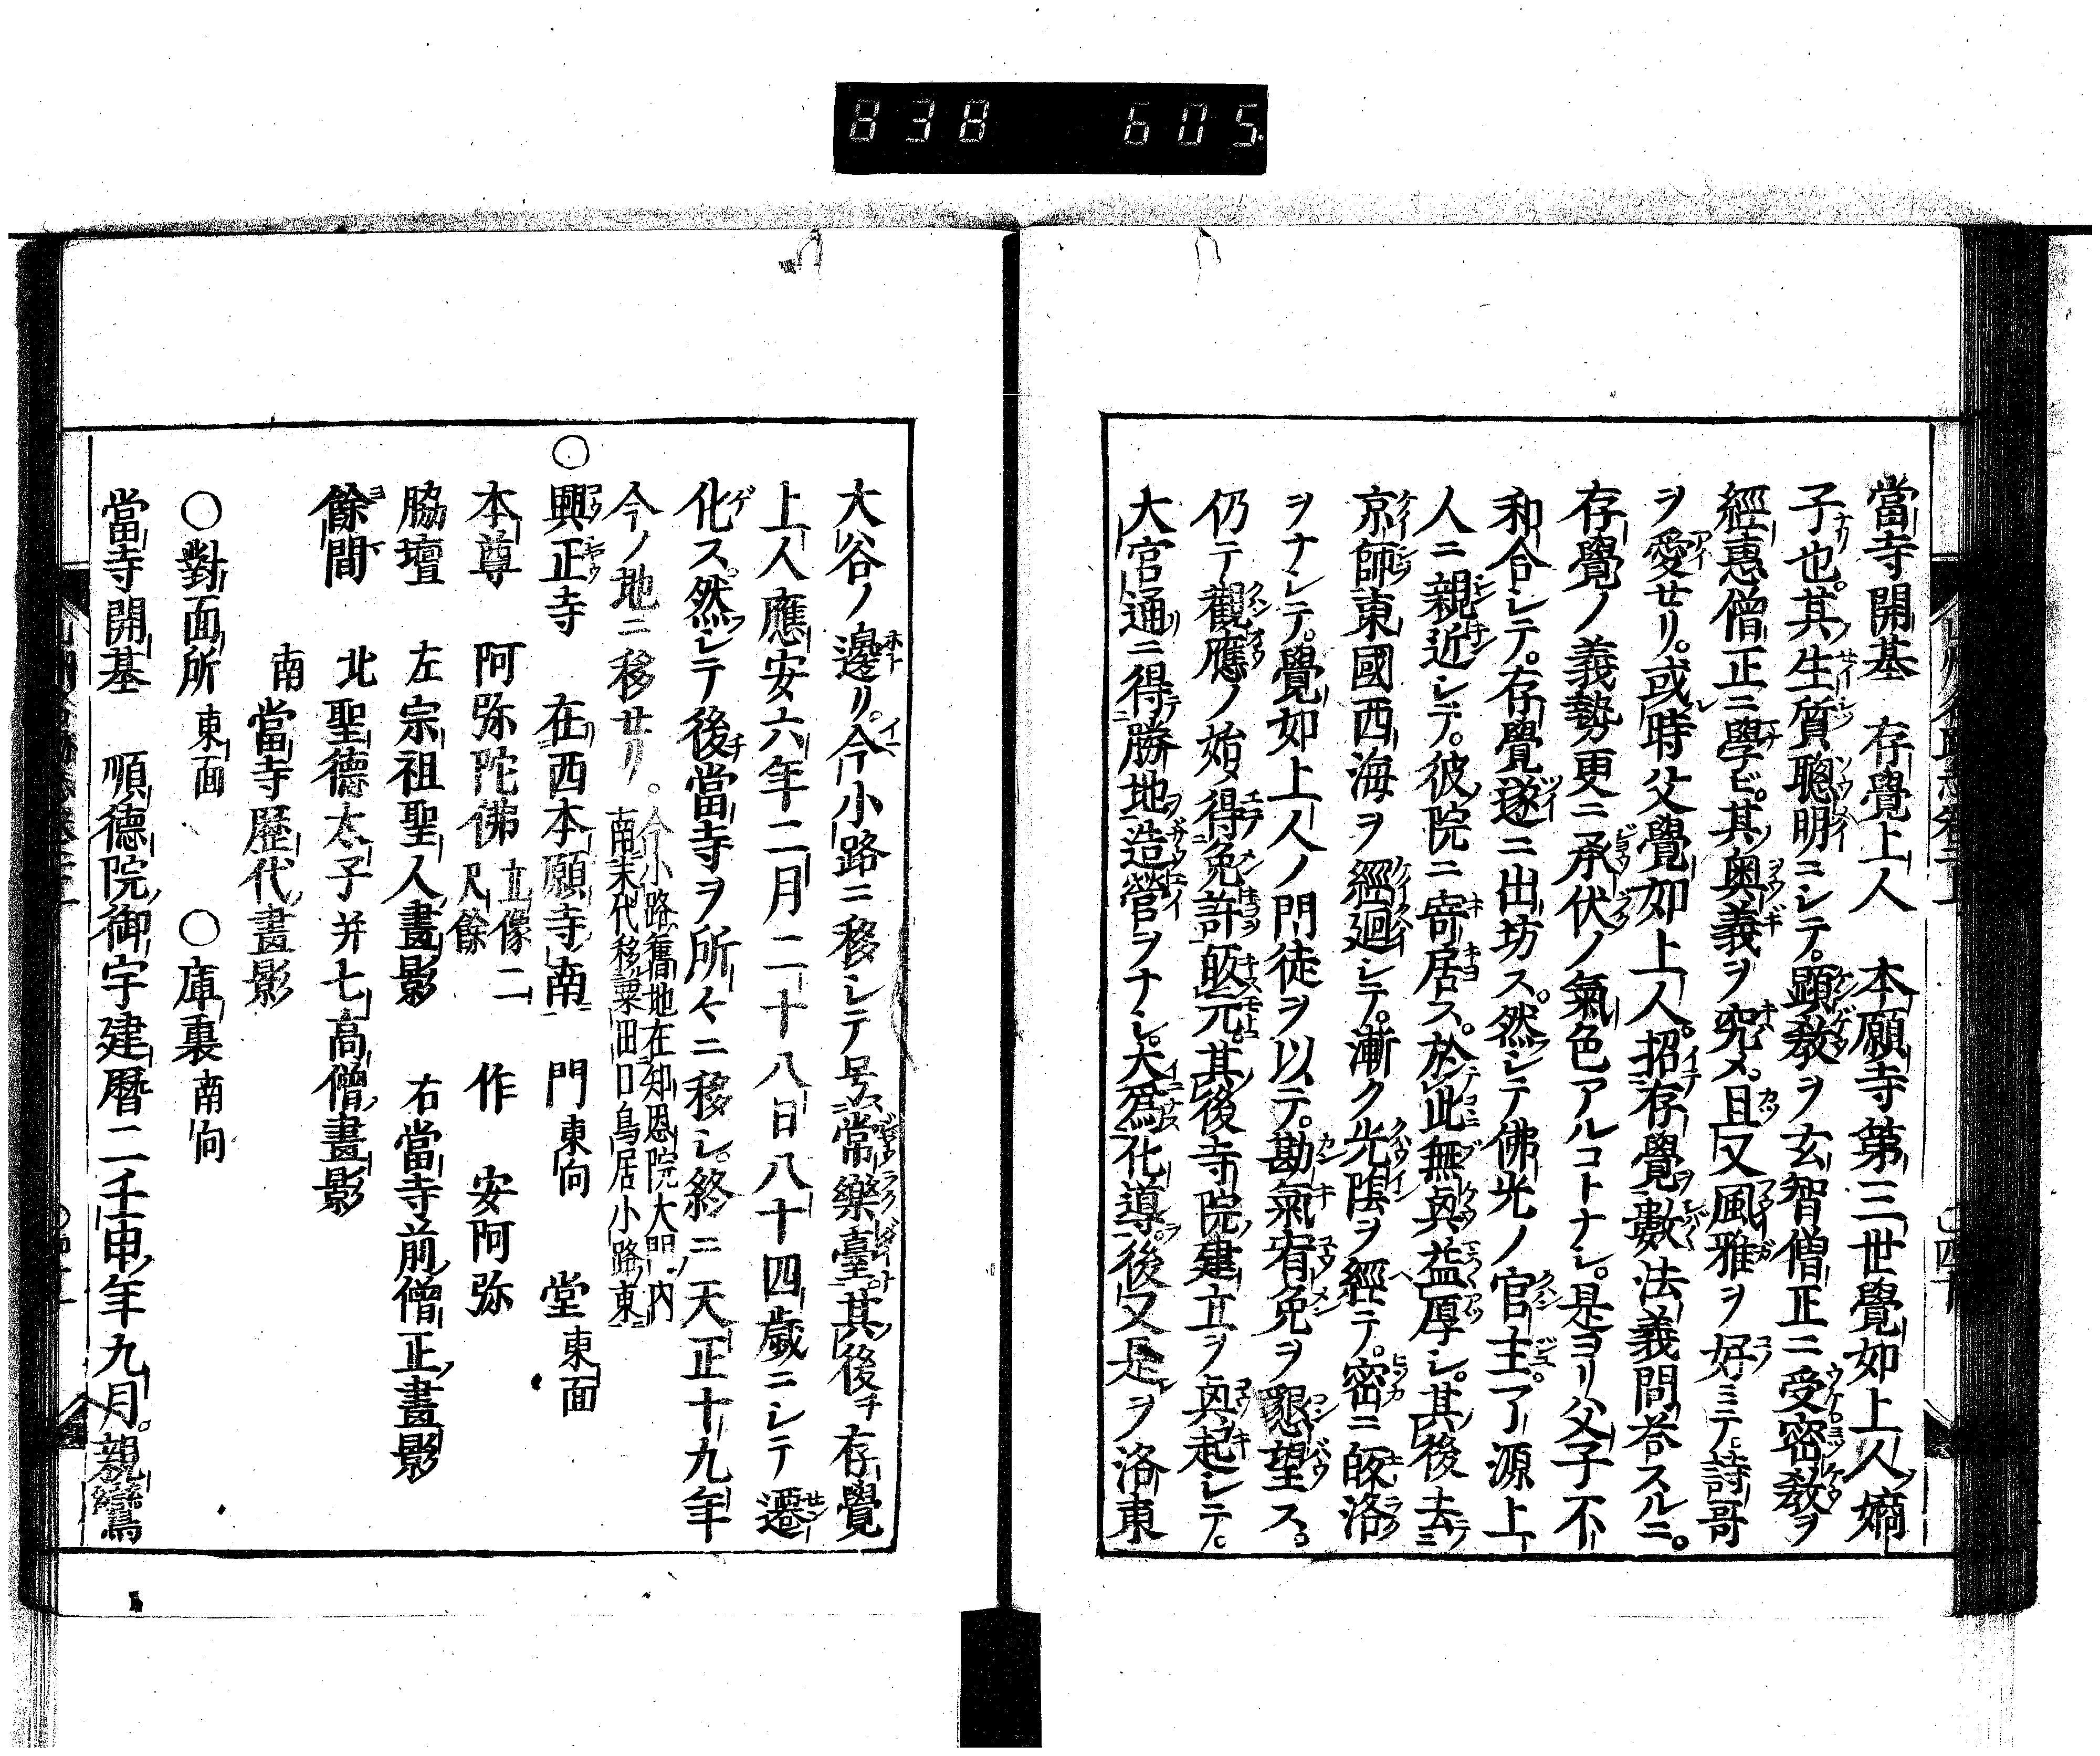 838 605
當寺開基 存覺上人 本願寺第三世覺如上人ノ嫡
子也。其ノ生質聰明ニシテ。顕教ヲ玄智僧正ニ受密教ヲ
經惠僧正ニ學ビ。其ノ奥義ヲ究メ。且又風雅ヲ好ミテ詩哥
ヲ愛セリ。或時父覺如上人。招存覺ヲ數法義問答スルニ。
存覺ノ義勢更ニ承伏ノ氣色アルコトナシ。是ヨリ父子不
和合シテ。存覺遂ニ出坊ス。然シテ佛光ノ官主了源上
人ニ親近シテ。彼院ニ寄居ス。於此無益厚シ。其ノ後去
京師東國西海ヲ經廻シテ。漸ク光陰ヲ經テ。密ニ皈洛
ヲナシテ。覺如上人ノ門徒ヲ以テ。勘氣宥免ヲ懇望ス。
仍テ觀應ノ始得免許皈元。其後寺院建立ヲ興起シテ。
大宮通ニ得勝地造營ヲナシ。大為化導。後又是ヲ洛東
大谷ノ邊リ。今小路ニ移シテ号常樂臺。其後チ存覺
上人應安六年二月二十八日八十四歳ニシテ遷
化ス。然シテ後當寺ヲ所々ニ移シ。終ニ天正十九年
今ノ地ニ移セリ。今小路舊地在知恩院大門ノ内
南末代移粟田口鳥居小路東
○興正寺 在西本願寺南 門東向 堂東面
本尊 阿弥陀佛 立像二尺餘 作 安阿弥
脇壇 左宗祖聖人畫影 右當寺前僧正畫影
餘間 北聖德太子并七高僧畫影
南當寺歴代畫影
○對面所東面 ○庫裏南向
當寺開基 順德院御宇建暦二壬申年九月。親鸞